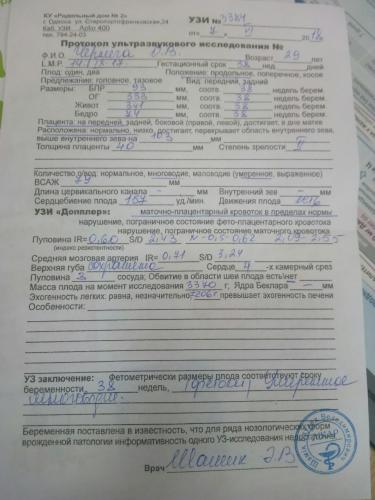 КУ «Родильный дом № 2»
г. Одесса ул. Старопортофранковская, 24
Каб. УЗИ Aplio 400
тел. 794-24-03
УЗИ №
от 7 VI 2018г.
Протокол ультразвукового исследования №
Ф.И.О. О.В. Возраст 29 лет
L.M.P. Гестационный срок 38 нед. дней
Плод: один, два Положение: продольное, поперечное, косое
Предлежание: головное, тазовое Вид: передний, задний
Размеры: БПР 93 мм, соотв. 38 недель берем.
ОГ 333 мм, соотв. 38 недель берем.
Живот 341 мм, соотв. 38 недель берем.
Бедро 74 мм, соотв. 38 недель берем.
Плацента: на передней, задней, боковой (правой, левой), достигает, в дне матке
Расположена: нормально, низко, достигает, перекрывает область внутреннего зева,
выше внутреннего зева на 103 мм
Толщина плаценты 40 мм Степень зрелости II
Количество о/вод: нормальное, многоводие, маловодие (умеренное, выраженное)
ВСАЖ 79 мм
Длина цервикального канала – мм Внутренний зев – мм
Сердцебиение плода 157 уд./мин. Движения плода
УЗИ «Допплер»: маточно-плацентарный кровоток в пределах нормы
нарушение, пограничное состояние фето-плацентарного кровотока
нарушение, пограничное состояние маточного кровотока
Пуповина IR= 0,60 S/D 2,43 N-0,5-0,62
(индекс резистентности)
Средняя мозговая артерия IR= 0,71 S/D 3,24
Верхняя губа сохранена Сердце 4-х камерный срез
Пуповина 3 сосуда; Обвитие в области шеи плода есть/нет
Масса плода на момент исследования 3370 г; Ядра Беклара – мм
Эхогенность легких: равна, незначительно превышает эхогенность печени
Особенности:
УЗ заключение: Фетометрически размеры плода соответствуют сроку
беременности 38 недель, Умеренное
многоводие.
Беременная поставлена в известность, что для ряда нозологических форм
врожденной патологии информативность одного УЗ-исследования
Врач